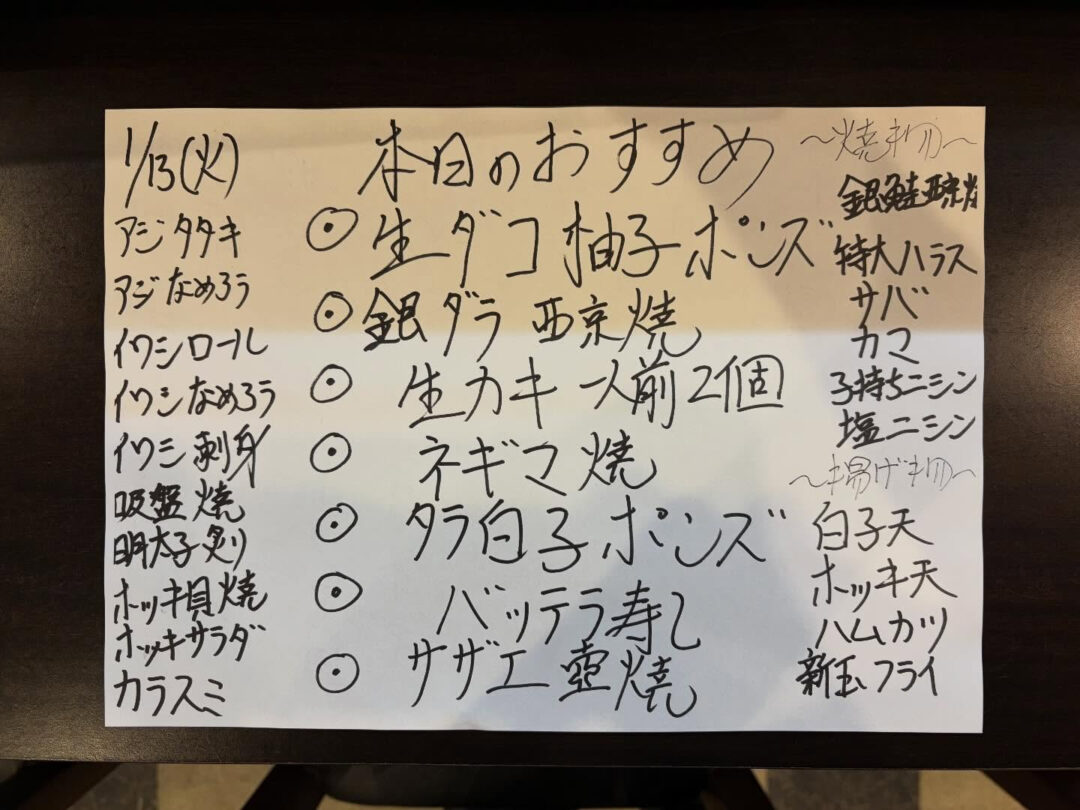 1/13(火)
本日のおすすめ
アジタタキ
アジなめろう
イワシロール
イワシなめろう
イワシ刺身
吸盤焼
明太子炙り
ホッキ貝焼
ホッキサラダ
カラスミ
⦿生ダコ柚子ポンズ
⦿銀ダラ西京焼
⦿生カキ一人前2個
⦿ネギマ焼
⦿タラ白子ポンズ
⦿バッテラ寿し
⦿サザエ壺焼
〜焼き物〜
銀鮭西京焼
特大ハラス
サバ
カマ
子持ちニシン
塩ニシン
〜揚げ物〜
白子天
ホッキ天
ハムカツ
新玉フライ